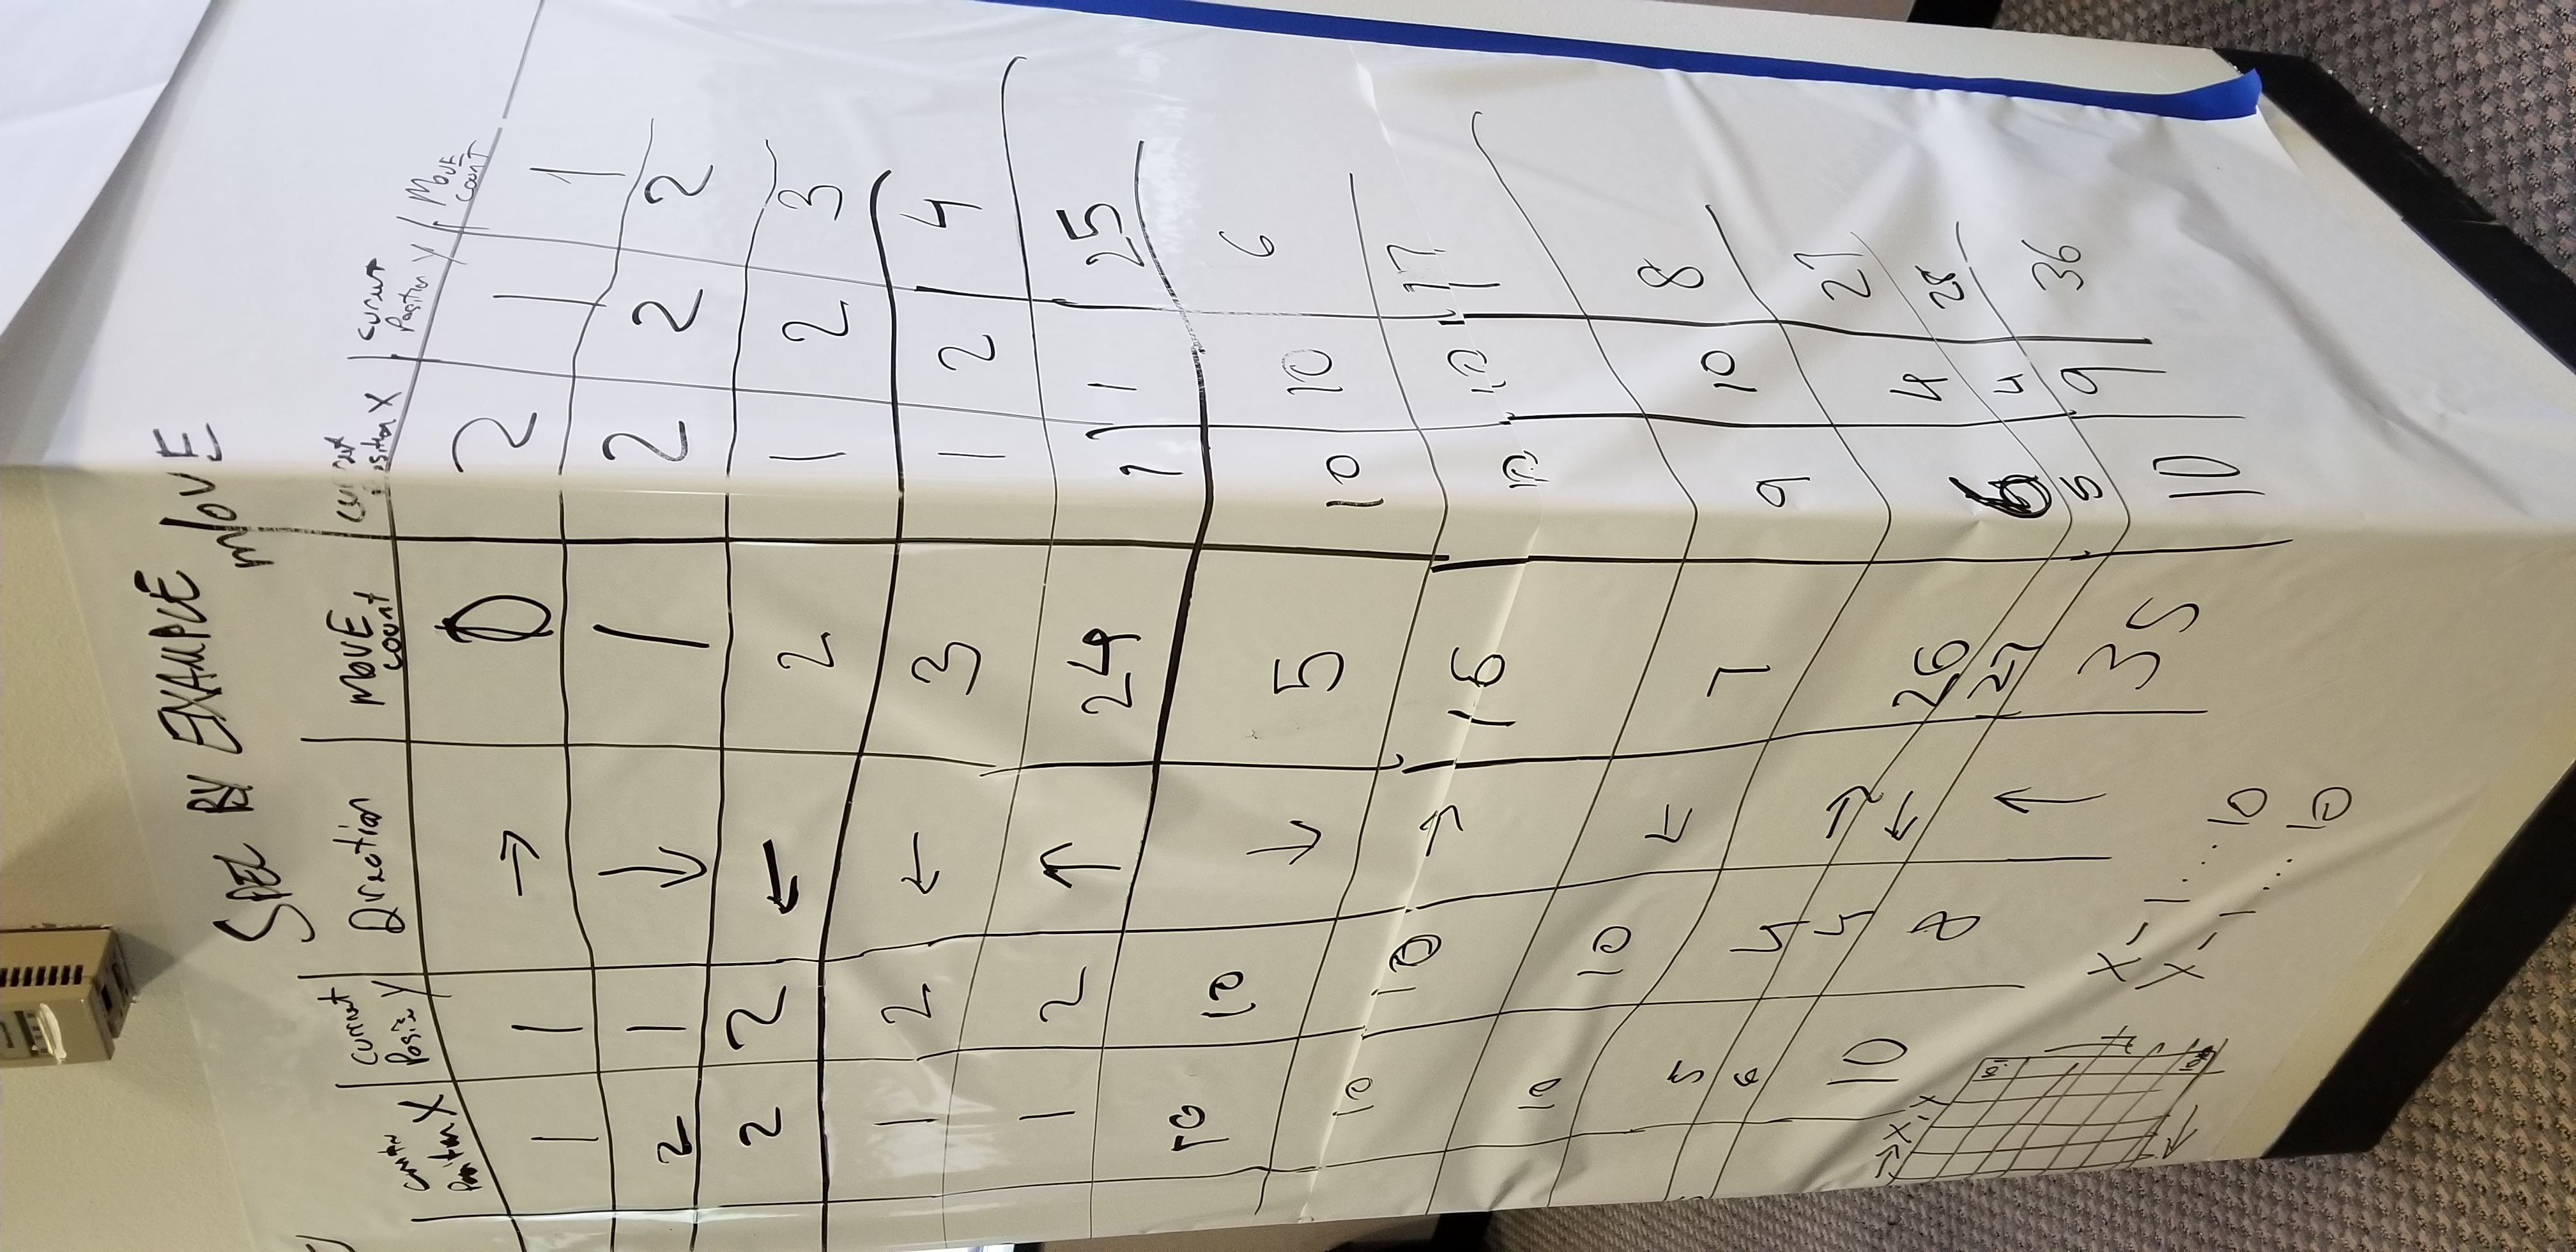 SPEC BY EXAMPLE MOVE
Position X | Current Position Y | Direction | MOVE count | Current Position X | Current Position Y | MOVE COUNT
1 | 1 | → | 0 | 2 | 1 | 1
2 | 1 | ↓ | 1 | 2 | 2 | 2
2 | 2 | ← | 2 | 1 | 2 | 3
1 | 2 | ← | 3 | 1 | 2 | 4
1 | 2 | ↑ | 24 | 1 | 1 | 25
10 | 10 | ↓ | 5 | 10 | 10 | 6
10 | 10 | → | 16 | 10 | 10 | 17
10 | 10 | ← | 7 | 9 | 10 | 8
5 | 4 | → | 26 | 6 | 4 | 27
6 | 4 | ← | 27 | 5 | 4 | 28
10 | 8 | ↑ | 35 | 10 | 9 | 36
→ X, Y
10,1
X - 1 ... 10
X - 1 ... 10